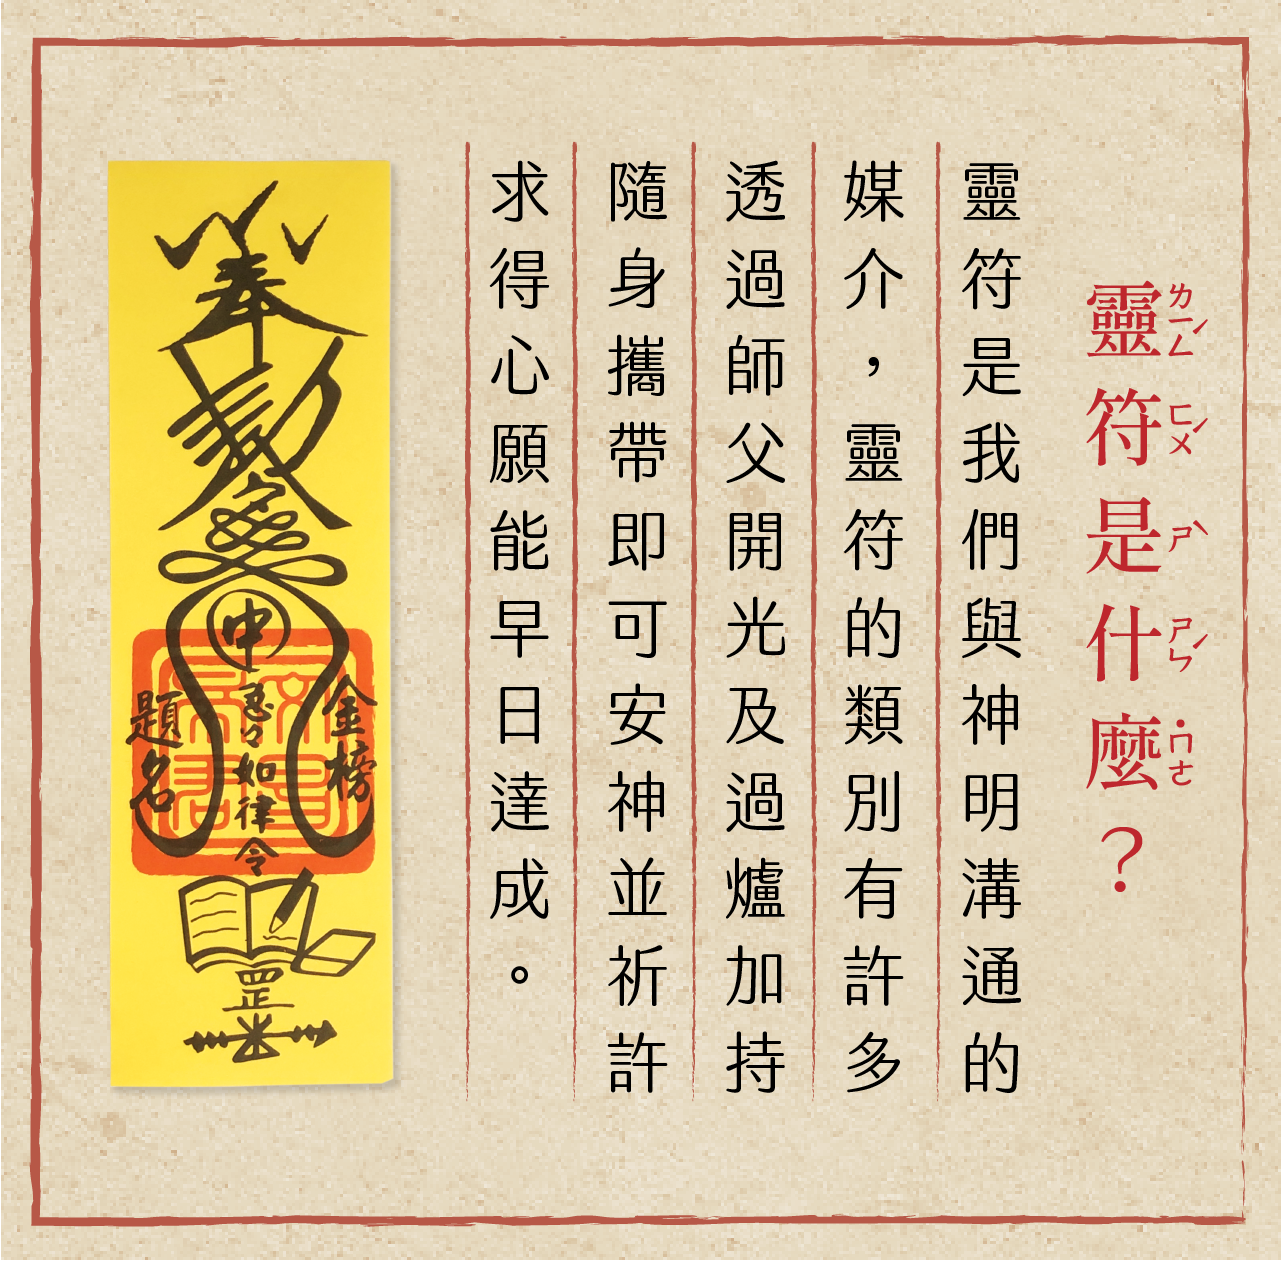 靈符是什麼？
ㄌㄧㄥˊ ㄈㄨˊ ㄕˋ ㄕㄣˊ ˙ㄇㄜ
靈符是我們與神明溝通的
媒介，靈符的類別有許多
透過師父開光及過爐加持
隨身攜帶即可安神並祈許
求得心願能早日達成。
奉
申
金榜
題名
如律令
罡